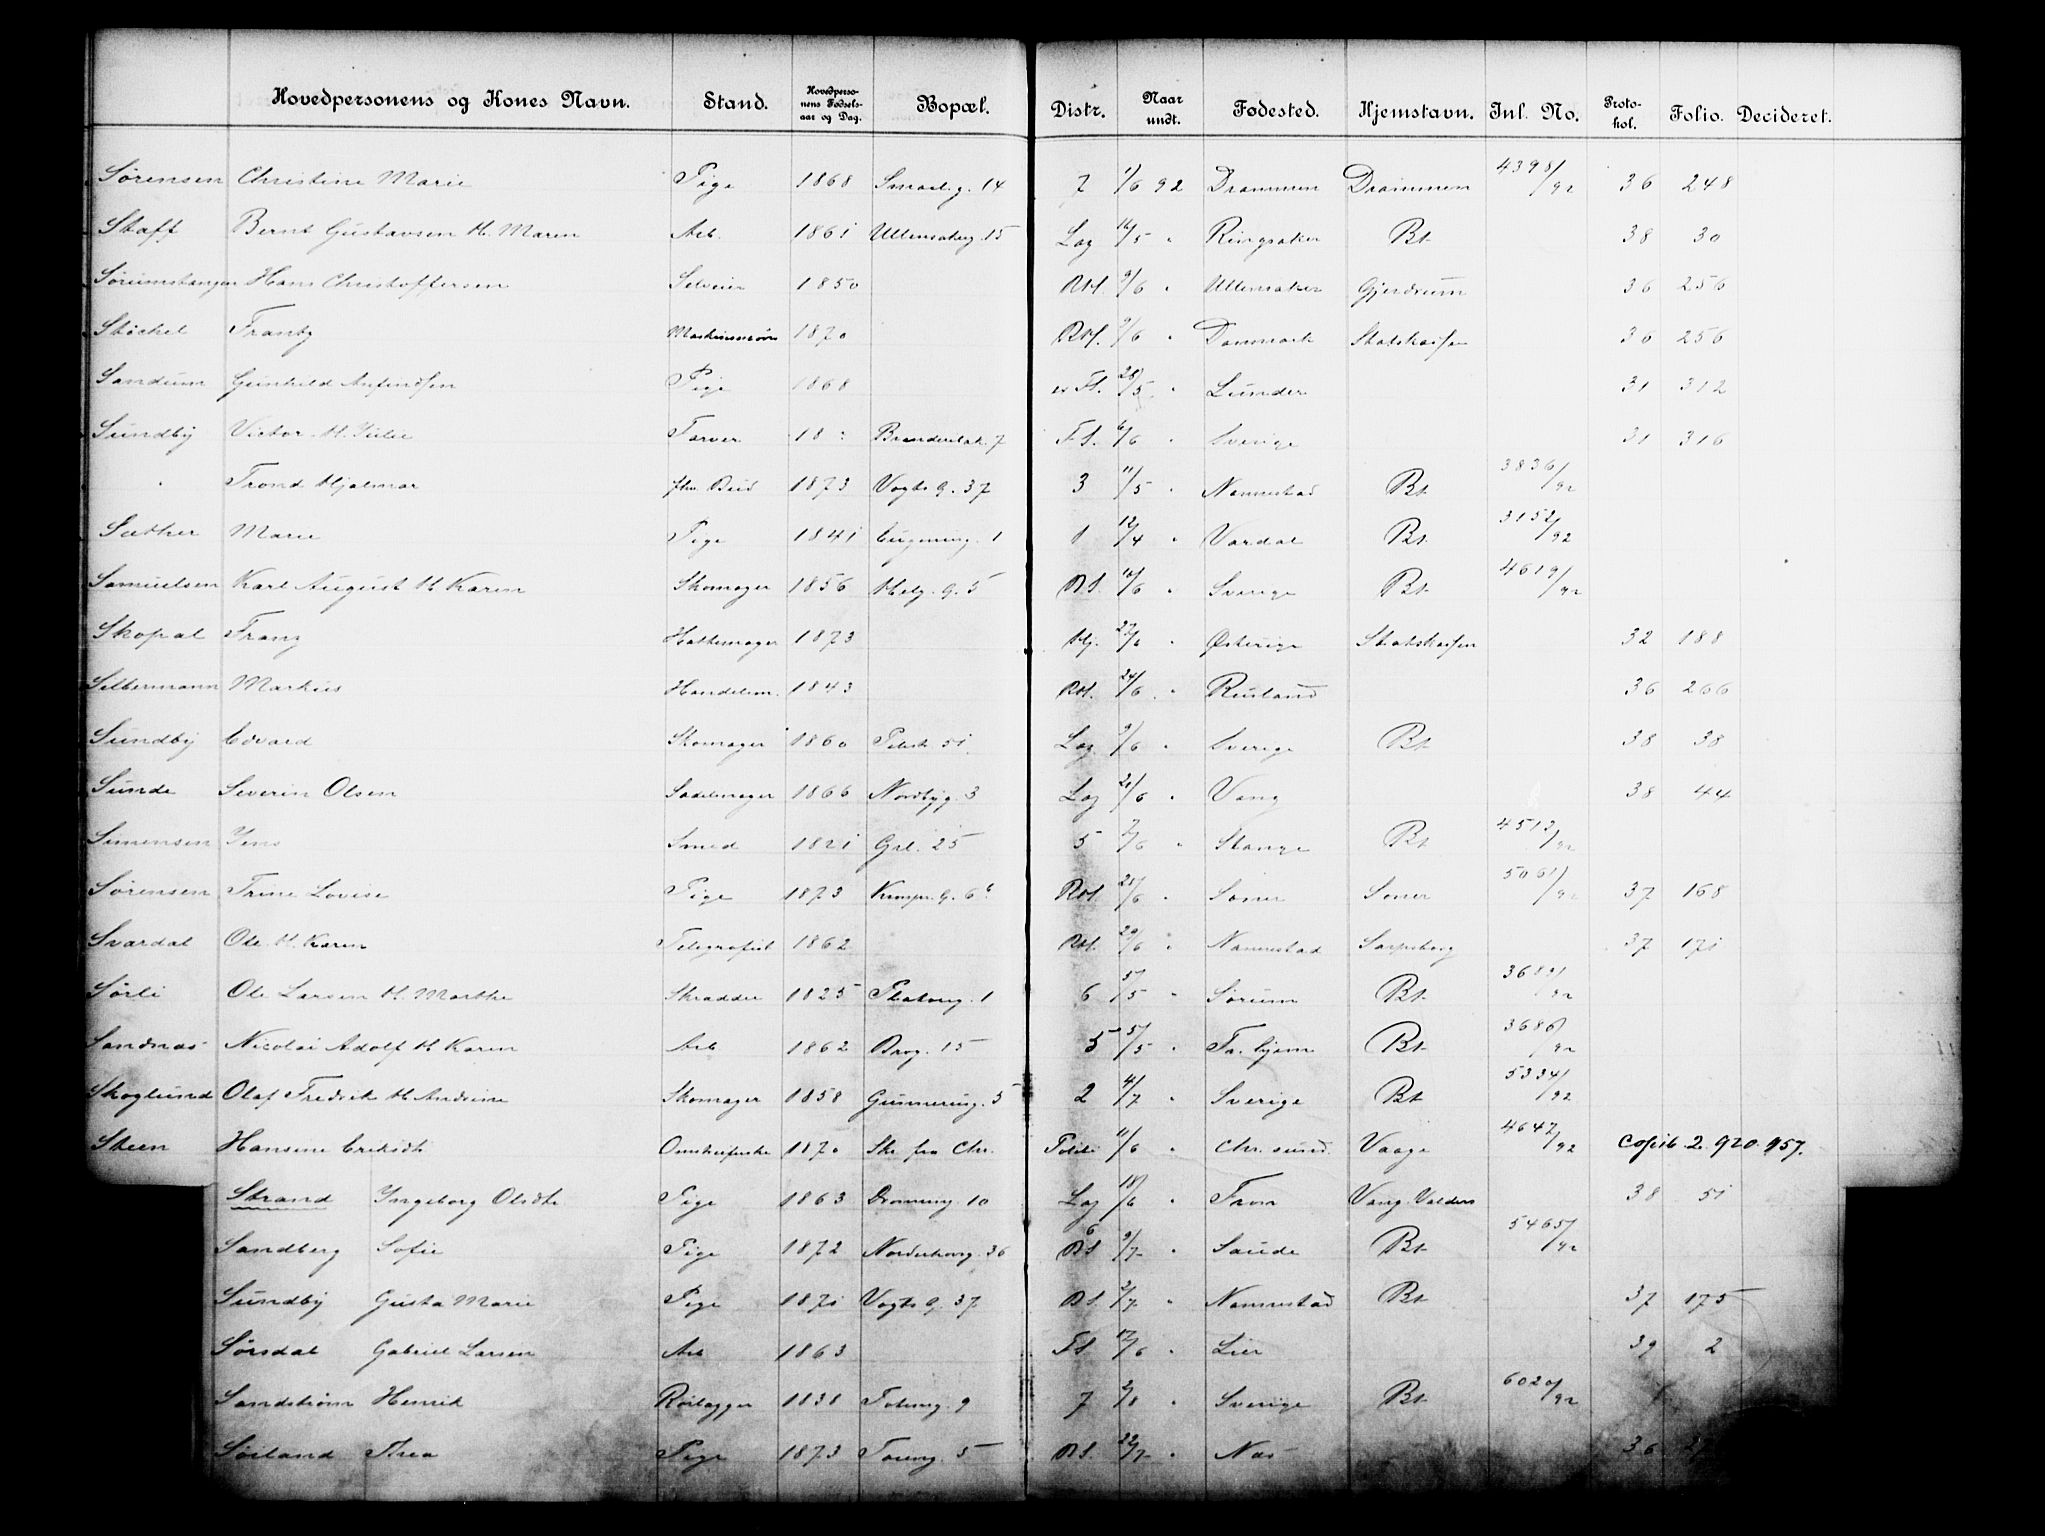 Hovedpersonens og Kones Navn. Stand. Hovedperso-nens Fødsels-aar og Dag. Bopæl. Distr. Naar undt. Fødested. Hjemstavn. Inl. No. Proto-kol. Folio. Decideret.
Sørensen Christine Marie Pige 1868 Smaalg. 14 7 1/6 92 Drammen Drammen 4398/92 36 248
Staff Bernt Gustavsen H. Maren Arb. 1861 Ullensakerg. 15 Log 14/5 " Ringsaker Bt 38 30
Sørumshangen Hans Christoffersen Selveier 1850 RH. 9/6 " Ullensaker Gjerdrum 36 256
Støckel Frantz 1870 RH. 9/6 " Danmark Statskassen 36 256
Sandum Gunhild Pige 1868 Fl. 28/5 " Lunder 31 312
Sundby Victor H. Julie Farver 18 : 7 Fl. 6/6 " Sverige 31 316
" Trond Hjalmar fhv. Bud 1873 Vogts g. 37 3 11/5 " Nannestad Bt 3836/92
Sæther Marie Pige 1841 Eugenieg. 1 1 12/4 " Vardal Bt 3152/92
Samuelsen Karl August H Karen Skomager 1856 Helg. g. 5 BS. 10/6 " Sverige Bt 4619/92
Skopal Franz Hattemager 1873 Hj. 27/6 " Østerige Statskassen 32 188
Silbermann Markus Handelsm. 1843 RH. 24/6 " Rusland 36 266
Sundby Edvard Skomager 1860 Pilestr. 51 Log 9/6 " Sverige Bt 38 38
Sunde Severin Olsen Sadelmager 1866 Nordbyg. 3 Log 21/6 " Vang 38 44
Simensen Jens Smed 1821 Grl. 25 5 7/6 " Stange Bt 4513/92
Sørensen Trine Lovise Pige 1873 g. 6 RH. 20/6 " Soner Soner 5061/92 37 168
Svardal Ole H. Karen Telegrafist 1862 RH. 29/6 " Nannestad Sarpsborg 37 171
Sørli Ole Larsen H. Marthe Skrædder 1825 Platoug. 1 6 5/5 " Sørum Bt 3689/92
Sandnæs Nicolai Adolf H Karen Arb 1862 15 5 5/5 " Tr. hjem Bt 3686/92
Skoglund Olaf Fredrik H Andrine Skomager 1858 Gunnerusg. 5 2 4/7 " Sverige Bt 5334/92
Steen Hansine Eriksdt. Omstreiferske 1870 Skr. fra Chr. Politi 11/6 " Chr. sund. Vaage 4647/92 Copib. 2. 920. 957.
Strand Ingeborg Olsdt. Pige 1863 Dronning. 10 Log 18/6 " From Vang. Valders 38 51
Sandberg Sofie Pige 1872 Norderhovg. 36 6 BS 9/7 " Saude Bt 5465/92
Sundby Gusta Marie Pige 1871 Vogts g. 37 BS. 2/7 " Nannestad Bt 37 175
Sørsdal Gabriel Larsen Arb 1863 Fl. 17/6 " Lier 39 2
Sandstrøm Henrik Rørlægger 1838 Toftesg. 9 7 2/8 " Sverige Bt 6020/92
Søiland Thea Pige 1873 5 BS. 22/7 " Næs 36